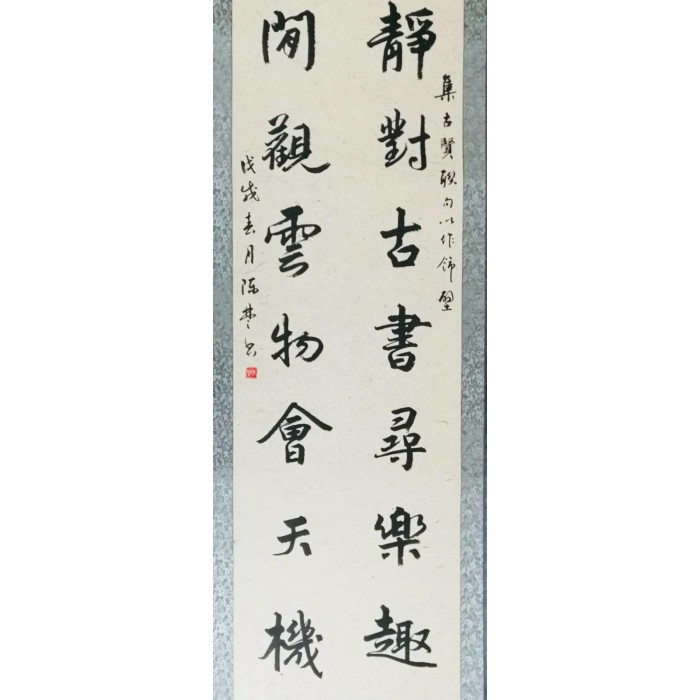 集古賢聯句以作飾壁
靜對古書尋樂趣
閒觀雲物會天機
戊戌春月陈楚书